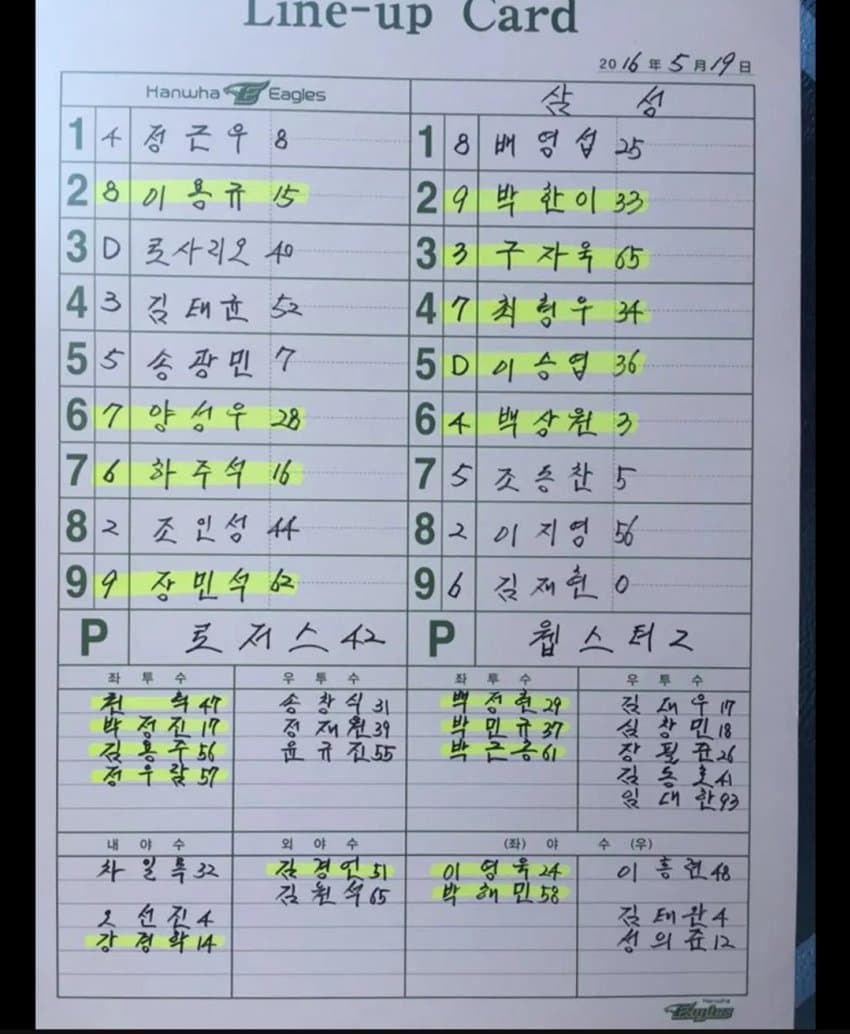 Line-up Card
2016年 5月 19日
Hanwha Eagles
삼 성
1 4 정근우 8
1 8 배영섭 25
2 8 이용규 15
2 9 박한이 33
3 D 로사리오 40
3 3 구자욱 65
4 3 김태균 52
4 7 최형우 34
5 5 송광민 7
5 D 이승엽 36
6 7 양성우 28
6 4 백상원 3
7 6 하주석 16
7 5 조동찬 5
8 2 조인성 44
8 2 이지영 56
9 9 장민석 62
9 6 김재현 0
P 로저스 42
P 웹스터 2
좌 투 수
권 혁 47
박정진 17
김용주 56
정우람 57
우 투 수
송창식 31
정재원 39
윤규진 55
좌 투 수
백정현 29
박민규 37
박근홍 61
우 투 수
김대우 17
심창민 18
장필준 26
김동호 41
임대한 93
내 야 수
차일목 32
오선진 4
강경학 14
외 야 수
김경언 51
김원석 65
(좌) 야 수 (우)
이영욱 24
박해민 58
이흥련 48
김태완 4
성의준 12
Hanwha
Eagles